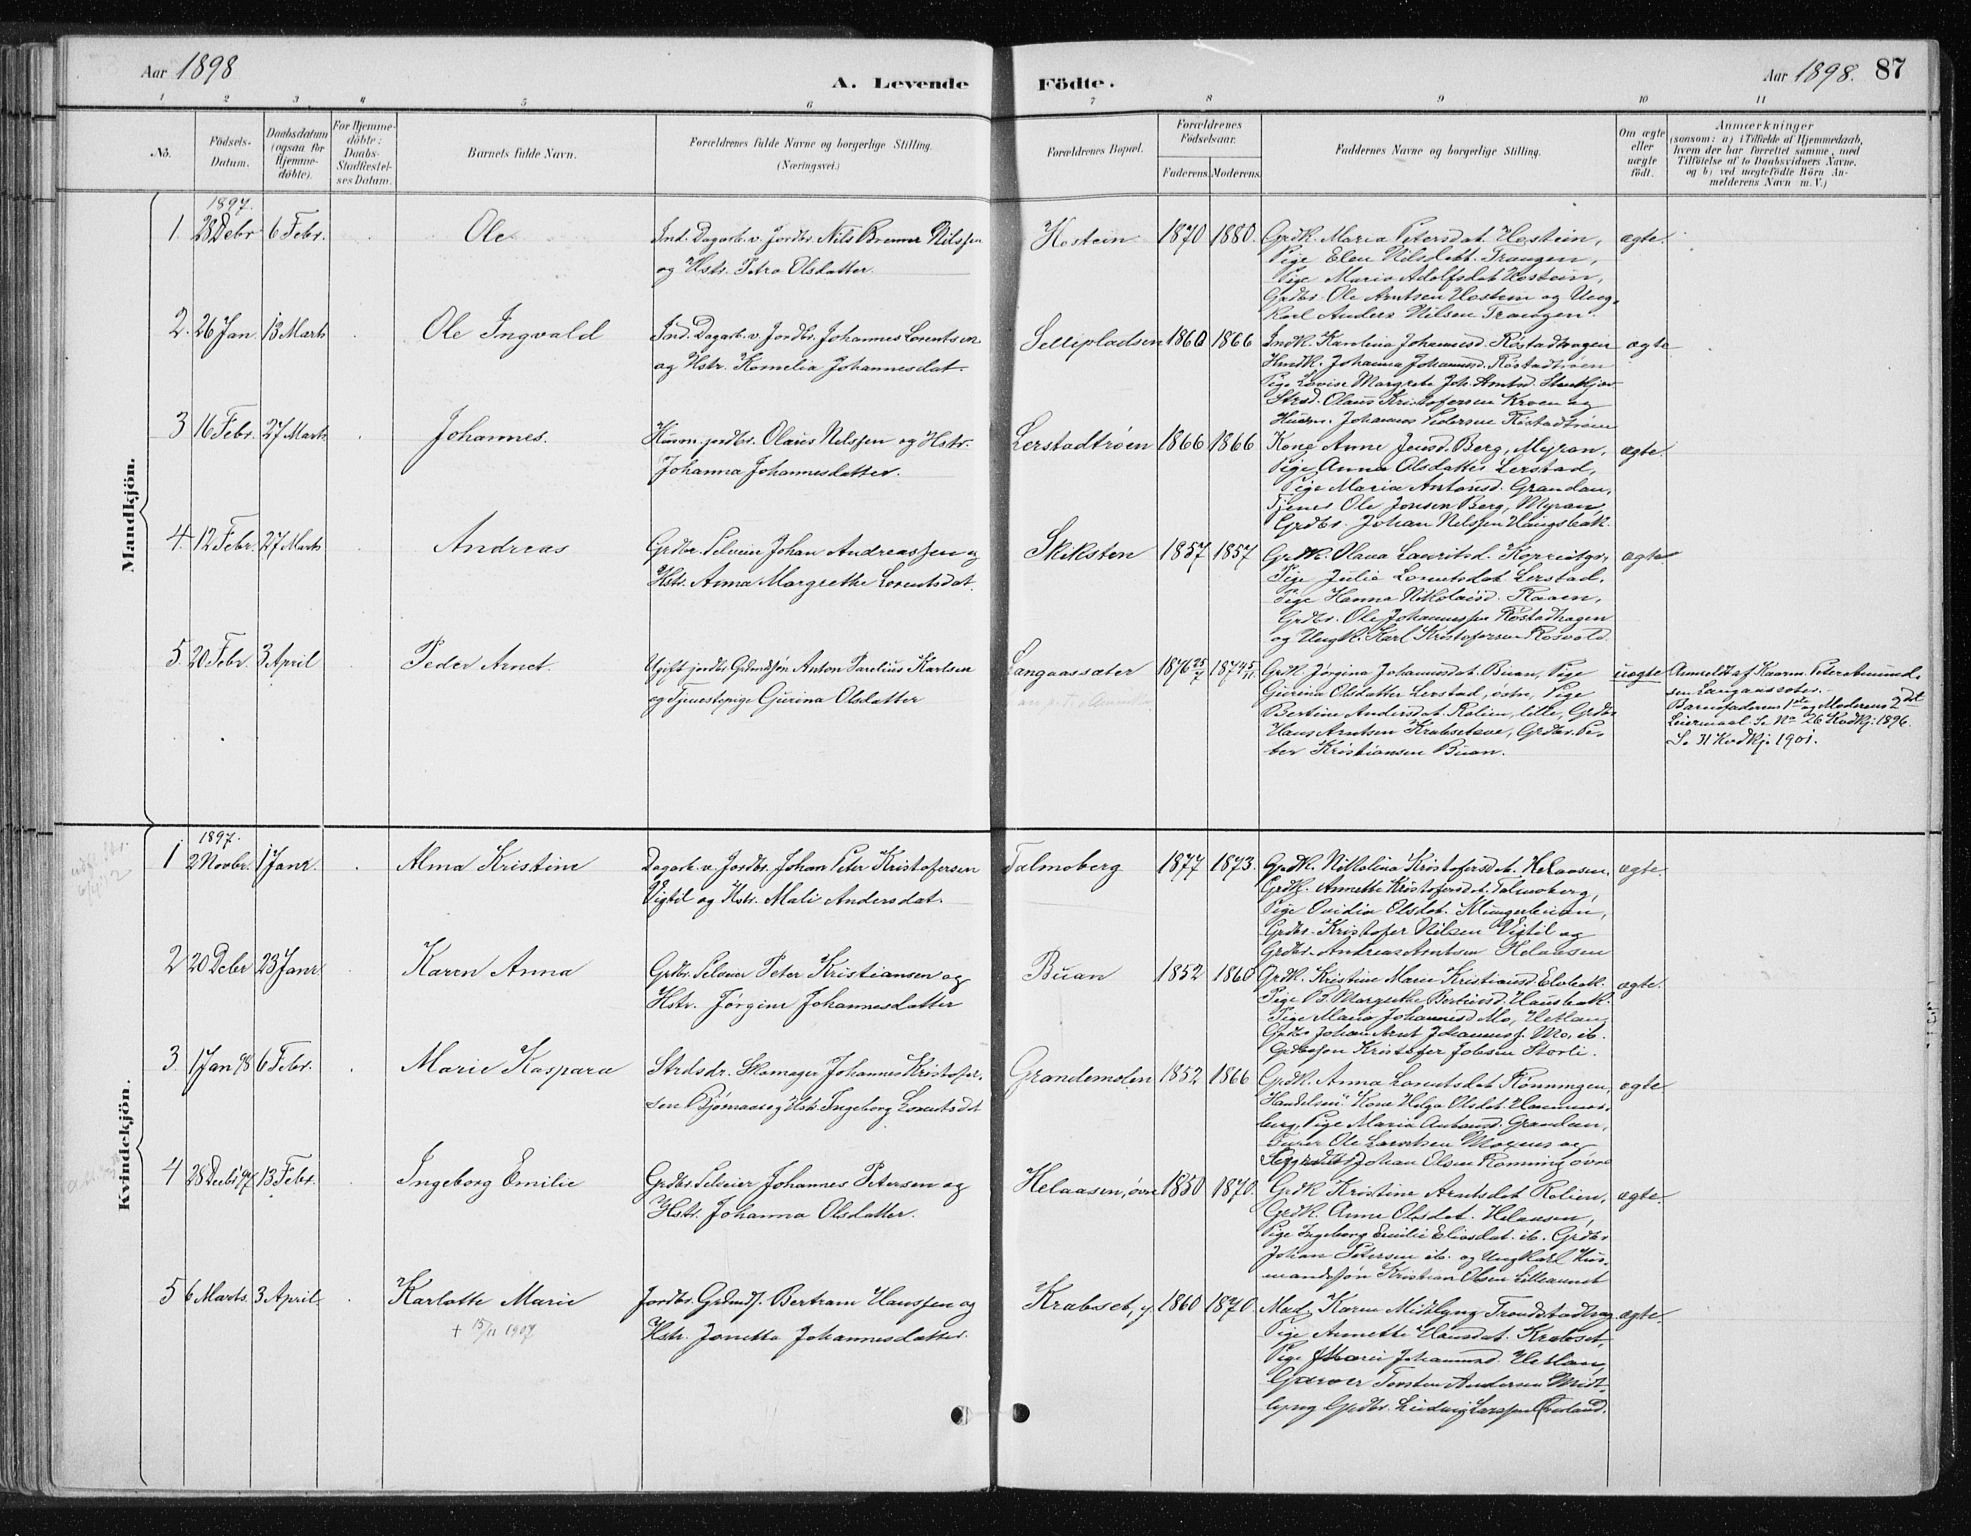 Aar 1898
A. Levende
Födte.
Aar 1898. 87
1 2 3 4 5 6 7 8 9 10 11
No.
Födsels-
Datum.
Daabsdatum
(ogsaa for
Hjemme-
döbte).
For Hjemme-
döbte:
Daabs-
Stadfæstel-
ses Datum.
Barnets fulde Navn.
Forældrenes fulde Navne og borgerlige Stilling.
(Næringsvei.)
Forældrenes Bopæl.
Forældrenes
Födselsaar.
Faderens. Moderens.
Faddernes Navne og borgerlige Stilling.
Om ægte
eller
uægte
födt.
Anmærkninger
(saasom: a) i Tilfælde af Hjemmedaab,
hvem der har forrettet samme, med
Tilföielse af to Daabsvidners Navne,
og b) ved uægtefödte Börn An-
melderens Navn m. V.)
Mandkjön.
1897.
1. 28 Debr 6 Febr. Ole
Ind. Dagarb. v. Jordbr. Nils Brenner Nilssen
og Hstr. Petra Olsdatter.
Hostein 1870 1880.
Grdk. Maria Petersdat. Hostein,
Pige Elen Nilsdatt. Trangen,
Pige Maria Adolfsdat. Hostein,
Grdbr. Ole Arntsen Hostein og Ung-
karl Anders Nilsen Trangen.
ægte.
2. 26 Jan 13 Marts Ole Ingvald
Ind. Dagarb. v. Jordbr. Johannes Lorentsen
og Hstr. Kornelia Johannesdat.
1860 1866
Indk. Karolina Johannesd. Röstadhagen
Husdk. Johanna Johannesd. Röstadtröen
Pige Lovise Margrete Joh.
Strsd. Olaus Kristofersen Kroen og
Husm. Johannes Pedersen Röstadtröen
ægte
3 16 Febr. 27 Marts Johannes.
Husm. jordbr. Olaus Nilssen og Hstr.
Johanna Johannesdatter.
Lerstadtröen 1866 1866
Kone Anne Jensd. Berg, Myran,
Pige Anna Olsdatter Lerstad,
Pige Maria Antonsd. Grandan,
Tjener Ole Jonsen Berg, Myran,
Grdbr. Johan Nilssen Haugsbak.
ægte.
4. 12 Febr. 27 Marts Andreas
Grdbr. Selveier Johan Andreassen og
Hstr. Anna Margrethe Lorentsdat.
Skiksten 1857 1857
Grdk. Olava Lauritsd.
Pige Julie Lorentsdat. Lerstad,
Pige Hanna Nikolaisd. Raaen,
Grdbr. Ole Johannessen Röstadhagen
og Ungk. Karl Kristofersen Rosvold.
ægte
5. 20 Febr. 3 April Peder Arnet.
Ugift jordbr. Grdmdssön Anton Parelius Karlsen
og Tjenestepige Gurina Olsdatter
Langaassæter 1876 25/7 1874 5/11.
Grdk. Jörgina Johannesdat. Buan, Pige
Gurina Olsdatter Lerstad, östre, Pige
Bertine Andersdat. Rolien, lille, Grdbr.
Hans Arntsen Krabsetave, Grdbr. Pe-
ter Kristiansen Buan.
uægte
Anmeldt af Kaarm. Peter Amund-
sen Langaassæter.
Barnefaderens 1ste og Moderens 2det
Leiermaal. Se No 26 Kvdkj. 1896.
Se 31 Kvdkj. 1901.
Kvindekjön.
1897.
1 2 Novbr. 1 Janr. Alma Kristine
Dagarb. v. Jordbr. Johan Peter Kristofersen
Vigtil og Hstr. Mali Andersdat.
Talmoberg 1877 1873.
Grdk. Nikolina Kristofersdat. Helaasen,
Grdk. Annette Kristofersdat. Talmoberg,
Pige Ovidia Olsdat.
Grdbr. Kristofer Nilsen Vigtil og
Grdbr. Andreas Arntsen Helaasen
ægte.
2 20 Debr 23 Janr Karen Anna
Grdbr. Selveier Peter Kristiansen og
Hstr. Jörgine Johannesdatter
Buan 1852 1860
Grdk. Kristine Marie Kristiansd. Elvbak.
Pige B. Margrethe Berntsd. Hausbak.
Pige Maria Johannesd. Mo, Hetlan,
Grdbr. Johan Arnt Johanness. Mo, ib.
Grdbrssön Kristofer Jobsen Storli.
ægte.
3 1 Jan 98 6 Febr. Marie Kaspara
Strdsdr. Skomager Johannes Kristofer-
sen Bjömaas og Hstr. Ingeborg Lorentsdat
Grandemolen 1852 1866
Grdk. Anna Lorentsdat. Rönningen,
Handelsm. Kone Helga Olsdat. Hammer-
berg, Pige Maria Antonsd. Grandan,
Ole Lorentsen Moxnes og
Johan Olsen Rönning övre
ægte
4 28 Decbr 97 13 Febr. Ingeborg Emilie
Grdbr. Selveier Johannes Petersen og
Hstr. Johanna Olsdatter.
Helaasen, övre 1850 1870.
Grdk Kristine Arntsdat. Rolien,
Grdk. Anne Olsdat. Helaasen,
Pige Ingeborg Emilie Eliasdat. ib. Grdbr
Johan Petersen ib. og Ungkarl Hus-
mandssön Kristian Olsen Lilleaunet
ægte.
5 6 Marts. 3 April Karlotte Marie
+ 15/11 1907
Jordbr. Grdmds. Bertram Hanssen og
Hstr. Jonetta Johannesdatter.
Krabset, y. 1860 1870.
Mad. Karen Midtlyng Trondstadhag
Pige Annette Hansdat. Krabset,
Pige Marie Johannesd. Hetlan,
Garver Torsten Andersen Midt-
lyng Grdbr. Ludvig Larssen Overland.
ægte.